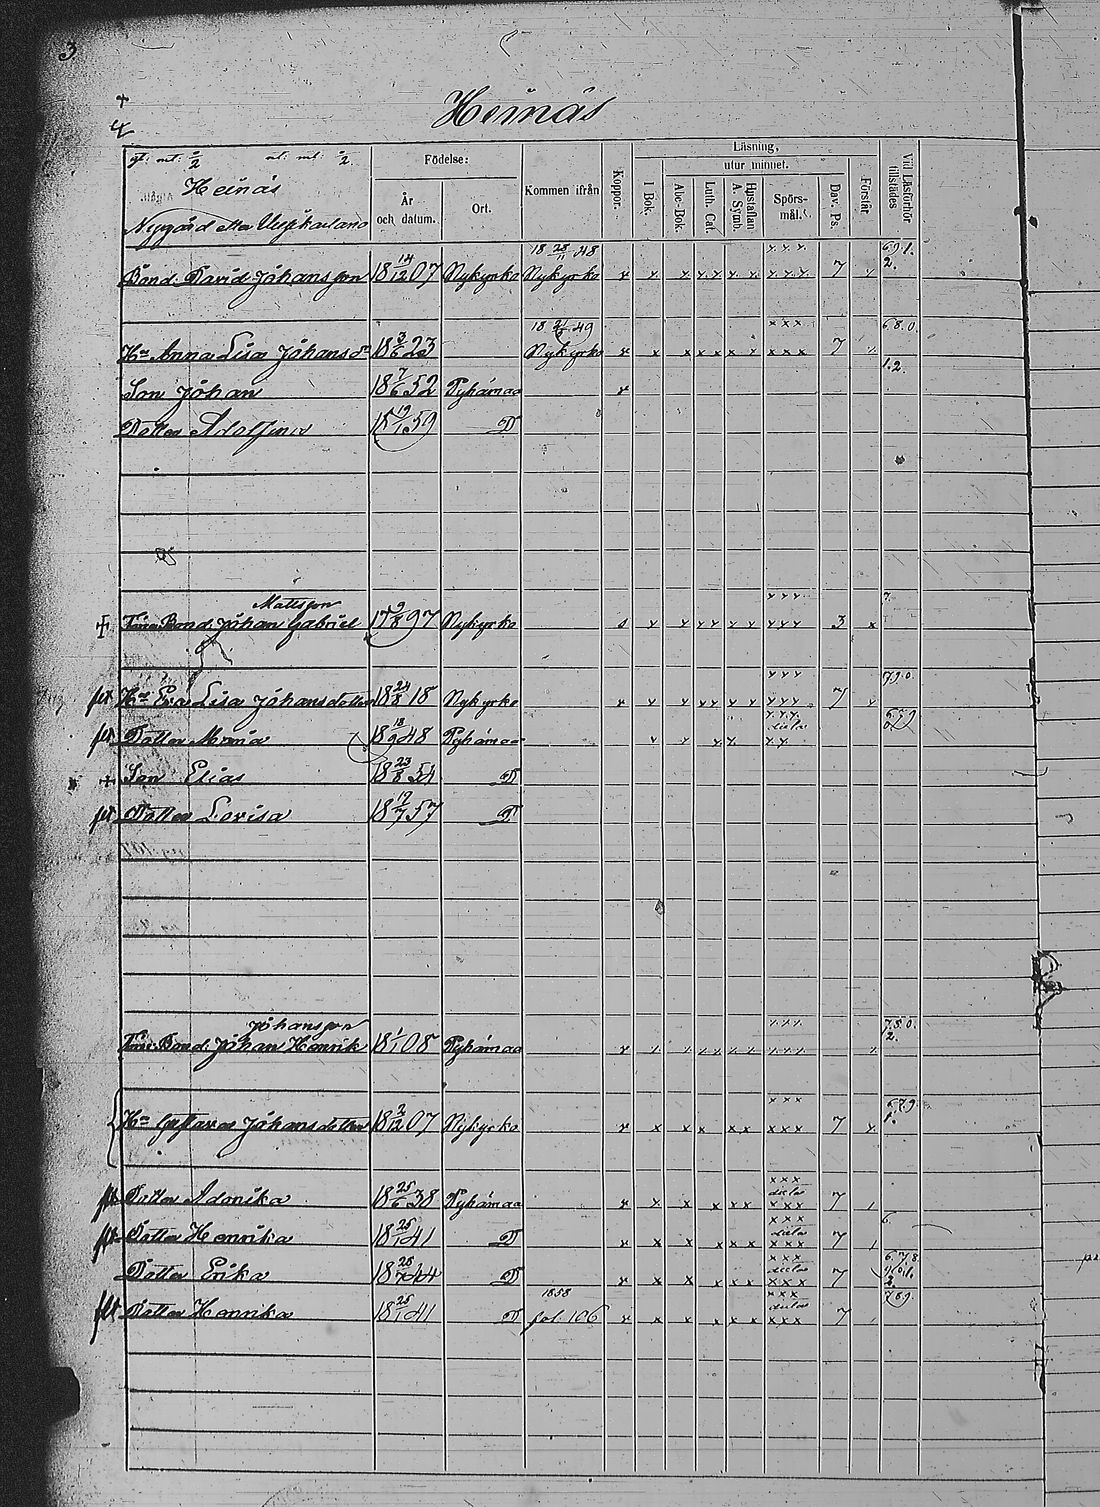 3
4
Heinäs
gl. mt: 0/2 nl. mt: 0/2.
Heinäs
Nygård eller Uusikartano
Födelse:
År och datum.
Ort.
Kommen ifrån
Koppor.
Läsning,
utur minnet.
I Bok.
Abc-Bok.
Luth. Cat.
Hustaflan A. Symb.
Spörs-mål.
Dav. Ps.
Förstår.
Vid Läsförhör tillstädes
Bond. David Johansson 18 14/12 07 Nykyrko 18 28/11 48 Nykyrko x x x x x x x x x x x x x x 7 x 691. 2.
Hu Anna Lisa Johansdr 18 3/6 23 18 49 Nykyrko x x x x x x x x x x x x x 7 x 680. 1.2.
Son Johan 18 7/6 52 Pyhämaa x
Dotter Adolfina 18 19/10 59 D
Mattsson
Förre Bond. Johan Gabriel 17 9/8 97 Nykyrko s x x x x x x x x x x x x 3 x 7.
Hu Eva Lisa Johansdotter 18 24/8 18 Nykyrko x x x x x x x x x x x x x 7 x 790.
flt Dotter Maria 18 18/9 48 Pyhämaa x x x x x x x dito x x
Son Elias 18 23/8 54 D
flt Dotter Lovisa 18 19/7 57 D
Johansson
Förre Bond. Johan Henrik 18 1/1 08 Pyhämaa x x x x x x x x x x x x x x 780. 2.
Hu Gustava Johansdotter 18 2/12 07 Nykyrko x x x x x x x x x x x x x 7 x 679. 1.
flt Dotter Adonika 18 25/6 38 Pyhämaa x x x x x x x x x dito x x x 7
flt Dotter Henrika 18 25/1 41 D x x x x x x x x x x dito x x x 7 6.
Dotter Erika 18 26/7 44 D x x x x x x x x x x dito x x x 7 678.
flt Dotter Henrika 18 25/1 41 D 1858 fol. 106 x x x x x x x x x x dito x x x 7 789.